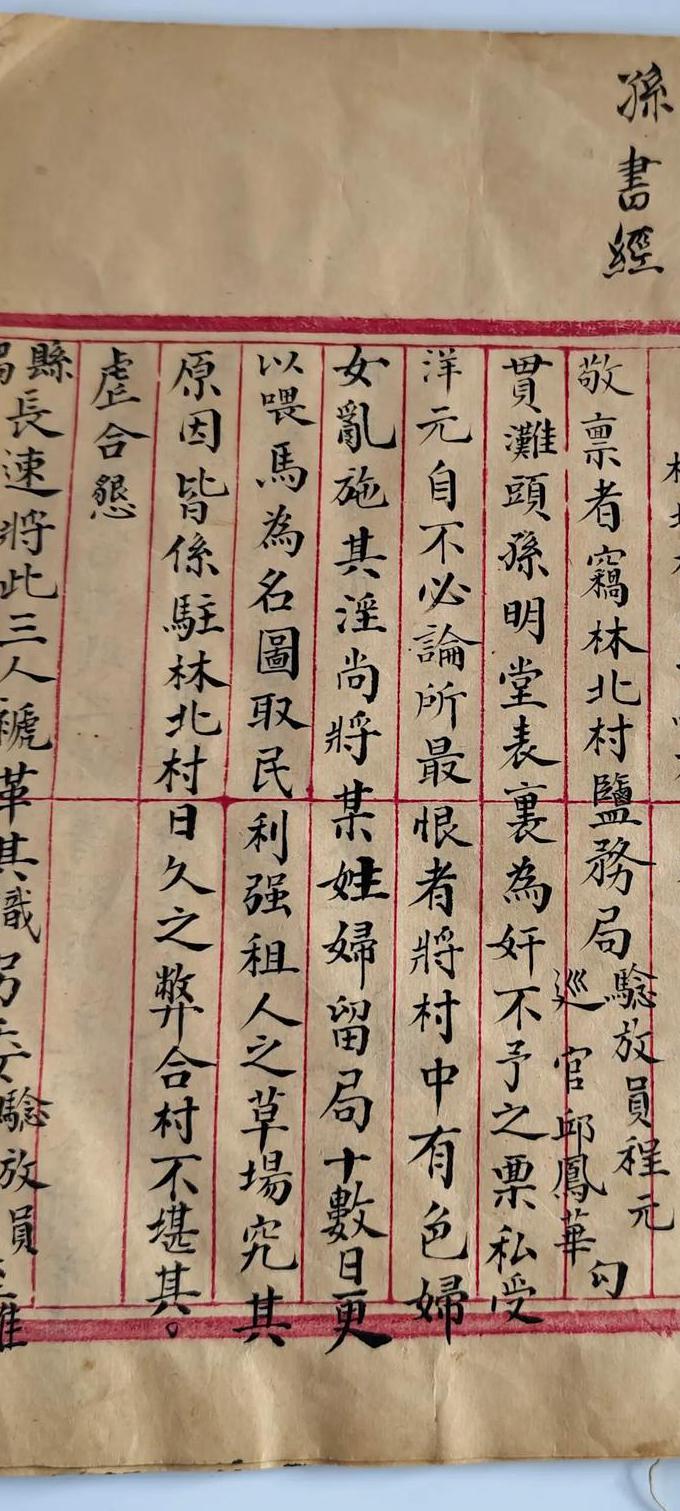 孫書經
敬禀者竊林北村鹽務局驗放員程元
巡官邱鳳華勾
貫灘頭孫明堂表裏為奸不予之票私受
洋元自不必論所最恨者將村中有色婦
女亂施其淫尚將某姓婦留局十數日更
以喂馬為名圖取民利强租人之草場究其
原因皆係駐林北村日久之弊合村不堪其。
虐合懇
縣長速將此三人褫革其職另 驗放員